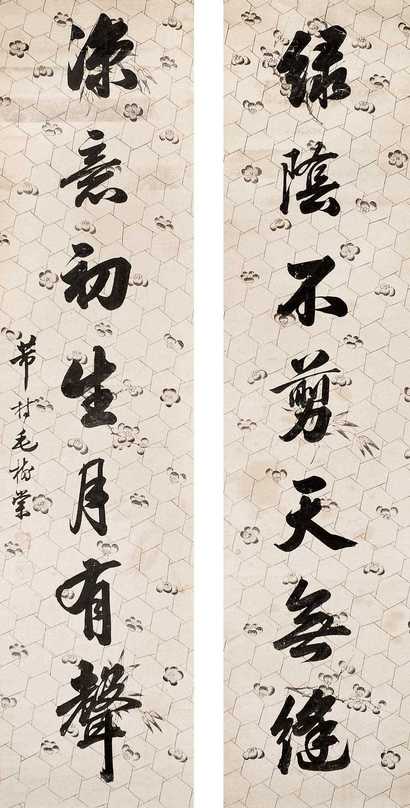 綠陰不剪天無縫
涼意初生月有聲
芾村毛樹棠